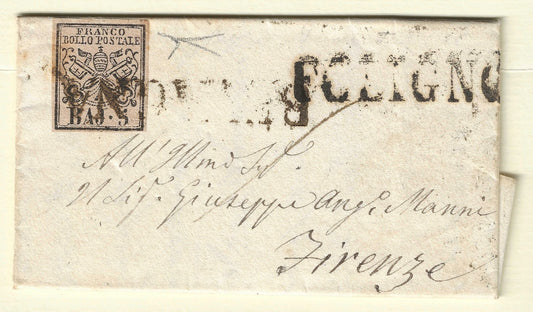 FRANCO
BOLLO POSTALE
BAJ. 5
FOLIGNO
All' Ill
Il Sig. Giuseppe Ang. Manni
Firenze